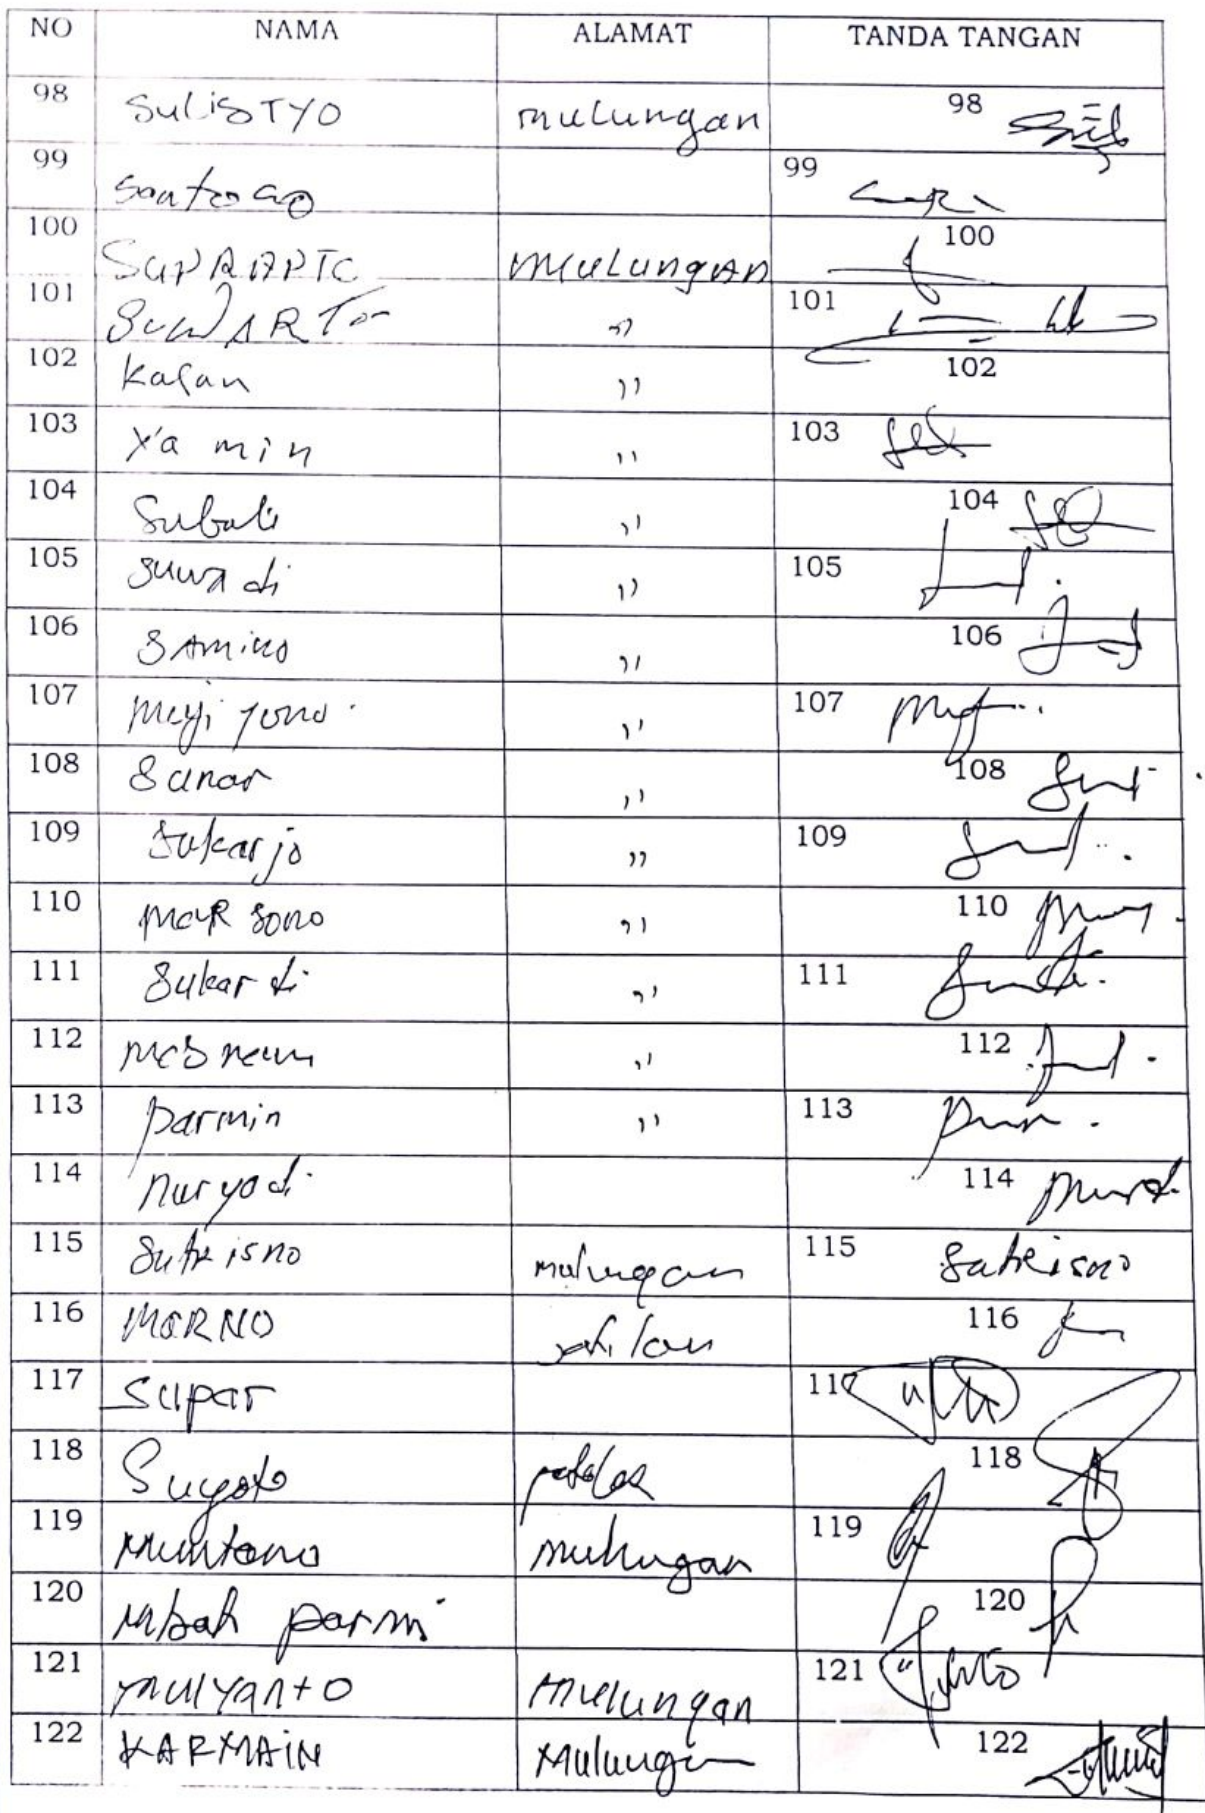 NO NAMA ALAMAT TANDA TANGAN
98 SuLiSTYO mulungan 98
99 Santoso 99
100 SUPRAPTO MULungAn 100
101 SuWARTo " 101
102 Kasan " 102
103 Ya min " 103
104 Subali " 104
105 Suwa di " 105
106 SAmino " 106
107 Muji yono. " 107
108 Sunar " 108
109 Sukarjo " 109
110 MaR Sono " 110
111 Sukar di " 111
112 "  112
113 Parmin " 113
114 Nuryadi 114
115 Sutrisno mulungan 115 Sutrisno
116 MaRNO 116
117 Supar 117
118 Suyoto 118
119 Muntono mulungan 119
120 Mbah parmi 120
121 MulYanto Mulungan 121
122 KARMAIN Mulungan 122